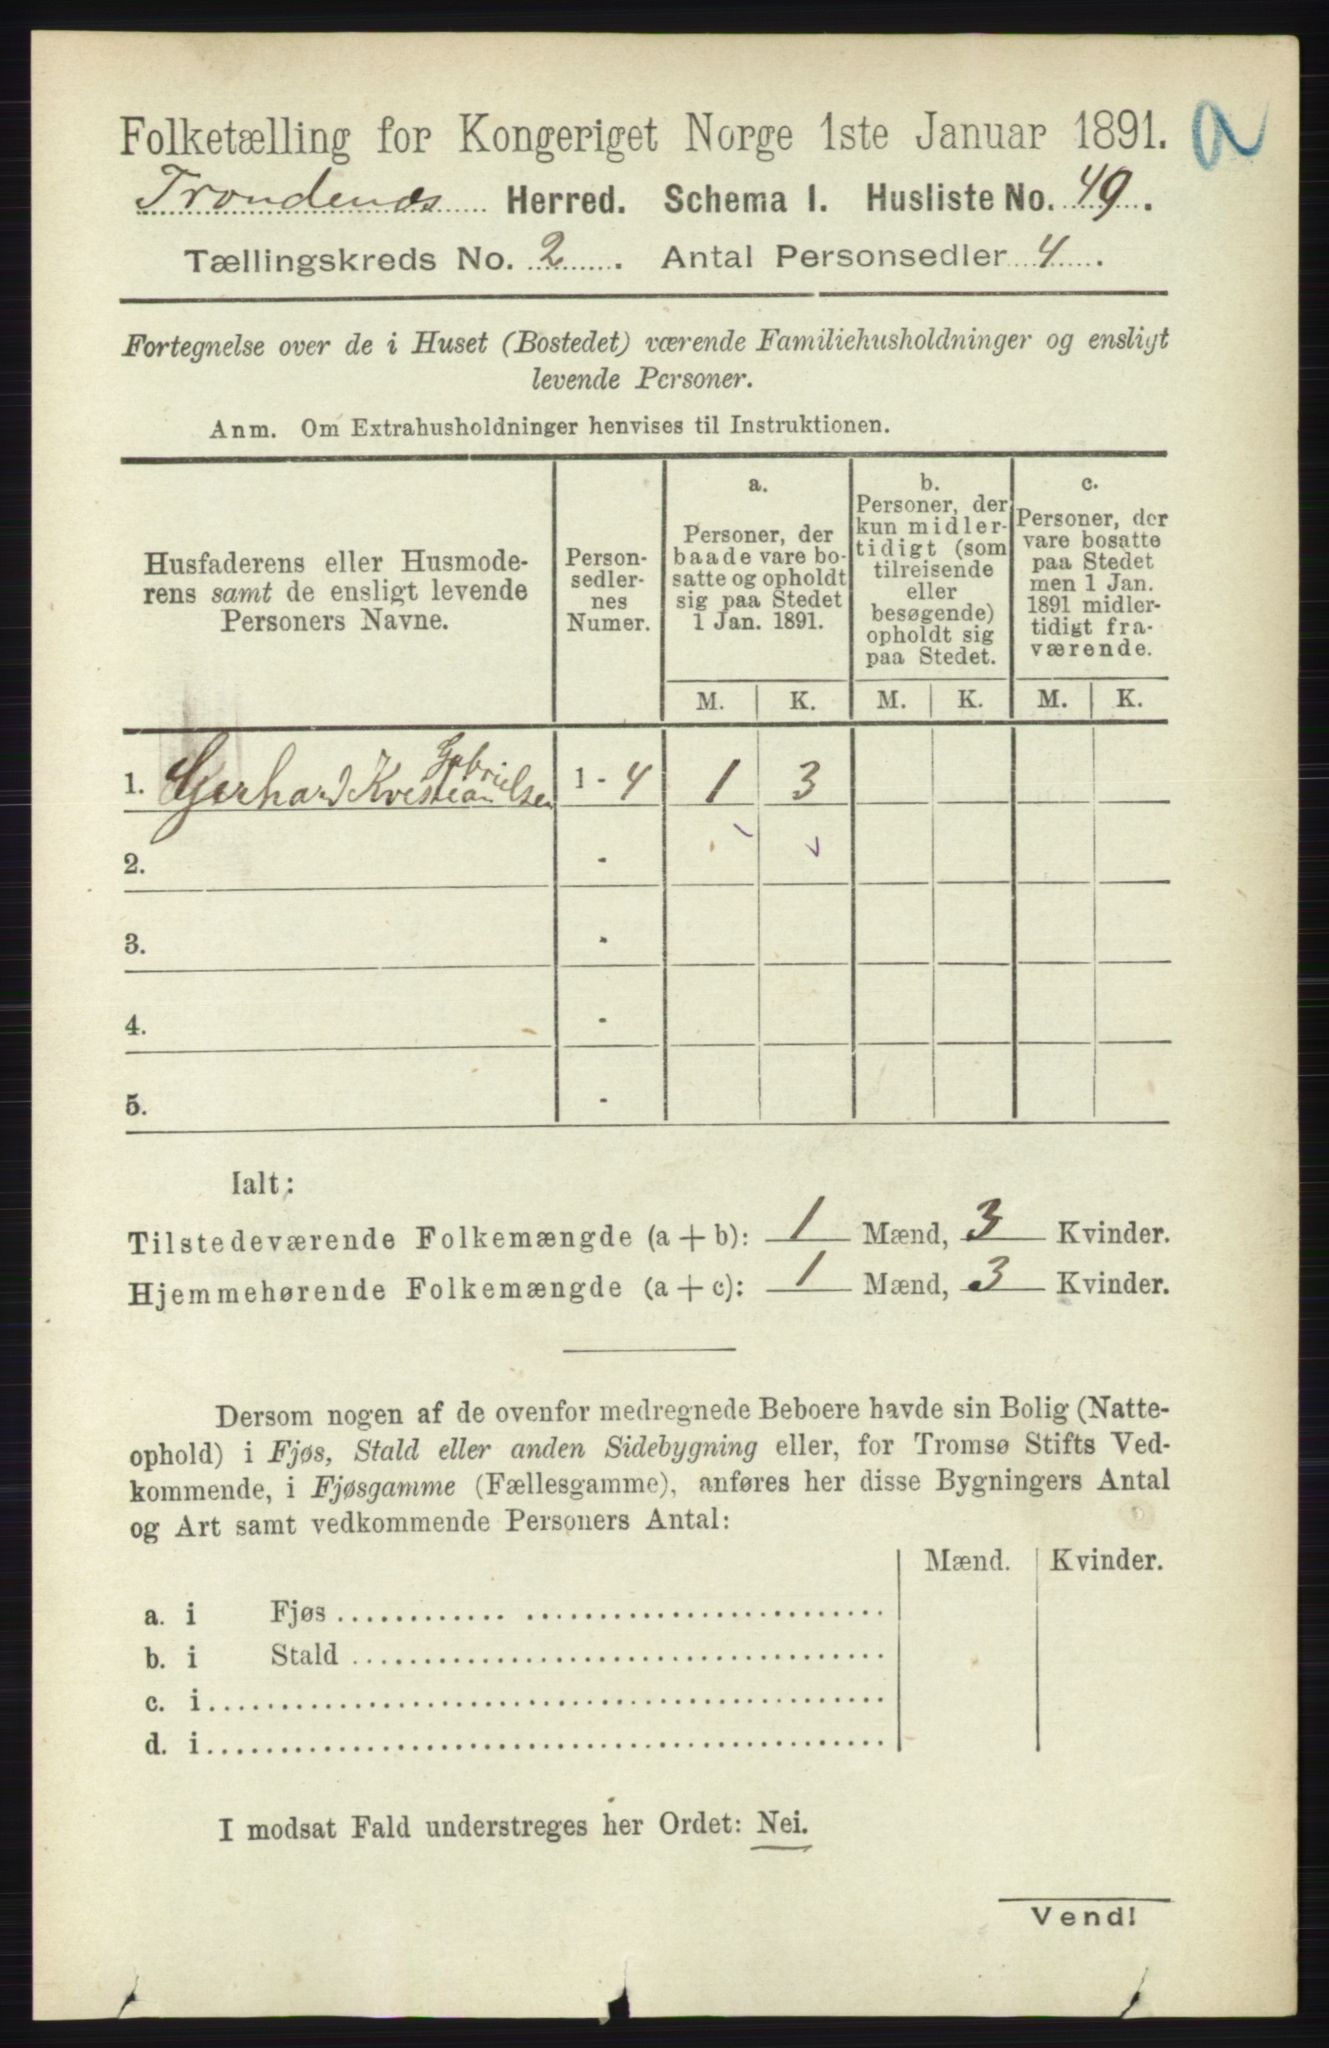 Folketælling for Kongeriget Norge 1ste Januar 1891.
a
Trondenæs Herred. Schema I. Husliste No. 49.
Tællingskreds No. 2. Antal Personsedler 4.
Fortegnelse over de i Huset (Bostedet) værende Familiehusholdninger og ensligt
levende Personer.
Anm. Om Extrahusholdninger henvises til Instruktionen.
Husfaderens eller Husmode-
rens samt de ensligt levende
Personers Navne.
Person-
sedler-
nes
Numer.
a.
Personer, der
baade vare bo-
satte og opholdt
sig paa Stedet
1 Jan. 1891.
b.
Personer, der
kun midler-
tidigt (som
tilreisende
eller
besøgende)
opholdt sig
paa Stedet.
c.
Personer, der
vare bosatte
paa Stedet
men 1 Jan.
1891 midler-
tidigt fra-
værende.
M. K. M. K. M. K.
1. Gerhard Kristian Gabrielsen 1 - 4 1 3
2. -
3. -
4. -
5. -
Ialt:
Tilstedeværende Folkemængde (a + b): 1 Mænd, 3 Kvinder.
Hjemmehørende Folkemængde (a + c): 1 Mænd, 3 Kvinder.
Dersom nogen af de ovenfor medregnede Beboere havde sin Bolig (Natte-
ophold) i Fjøs, Stald eller anden Sidebygning eller, for Tromsø Stifts Ved-
kommende, i Fjøsgamme (Fællesgamme), anføres her disse Bygningers Antal
og Art samt vedkommende Personers Antal:
Mænd. Kvinder.
a. i Fjøs
b. i Stald
c. i
d. i
I modsat Fald understreges her Ordet: Nei.
Vend!